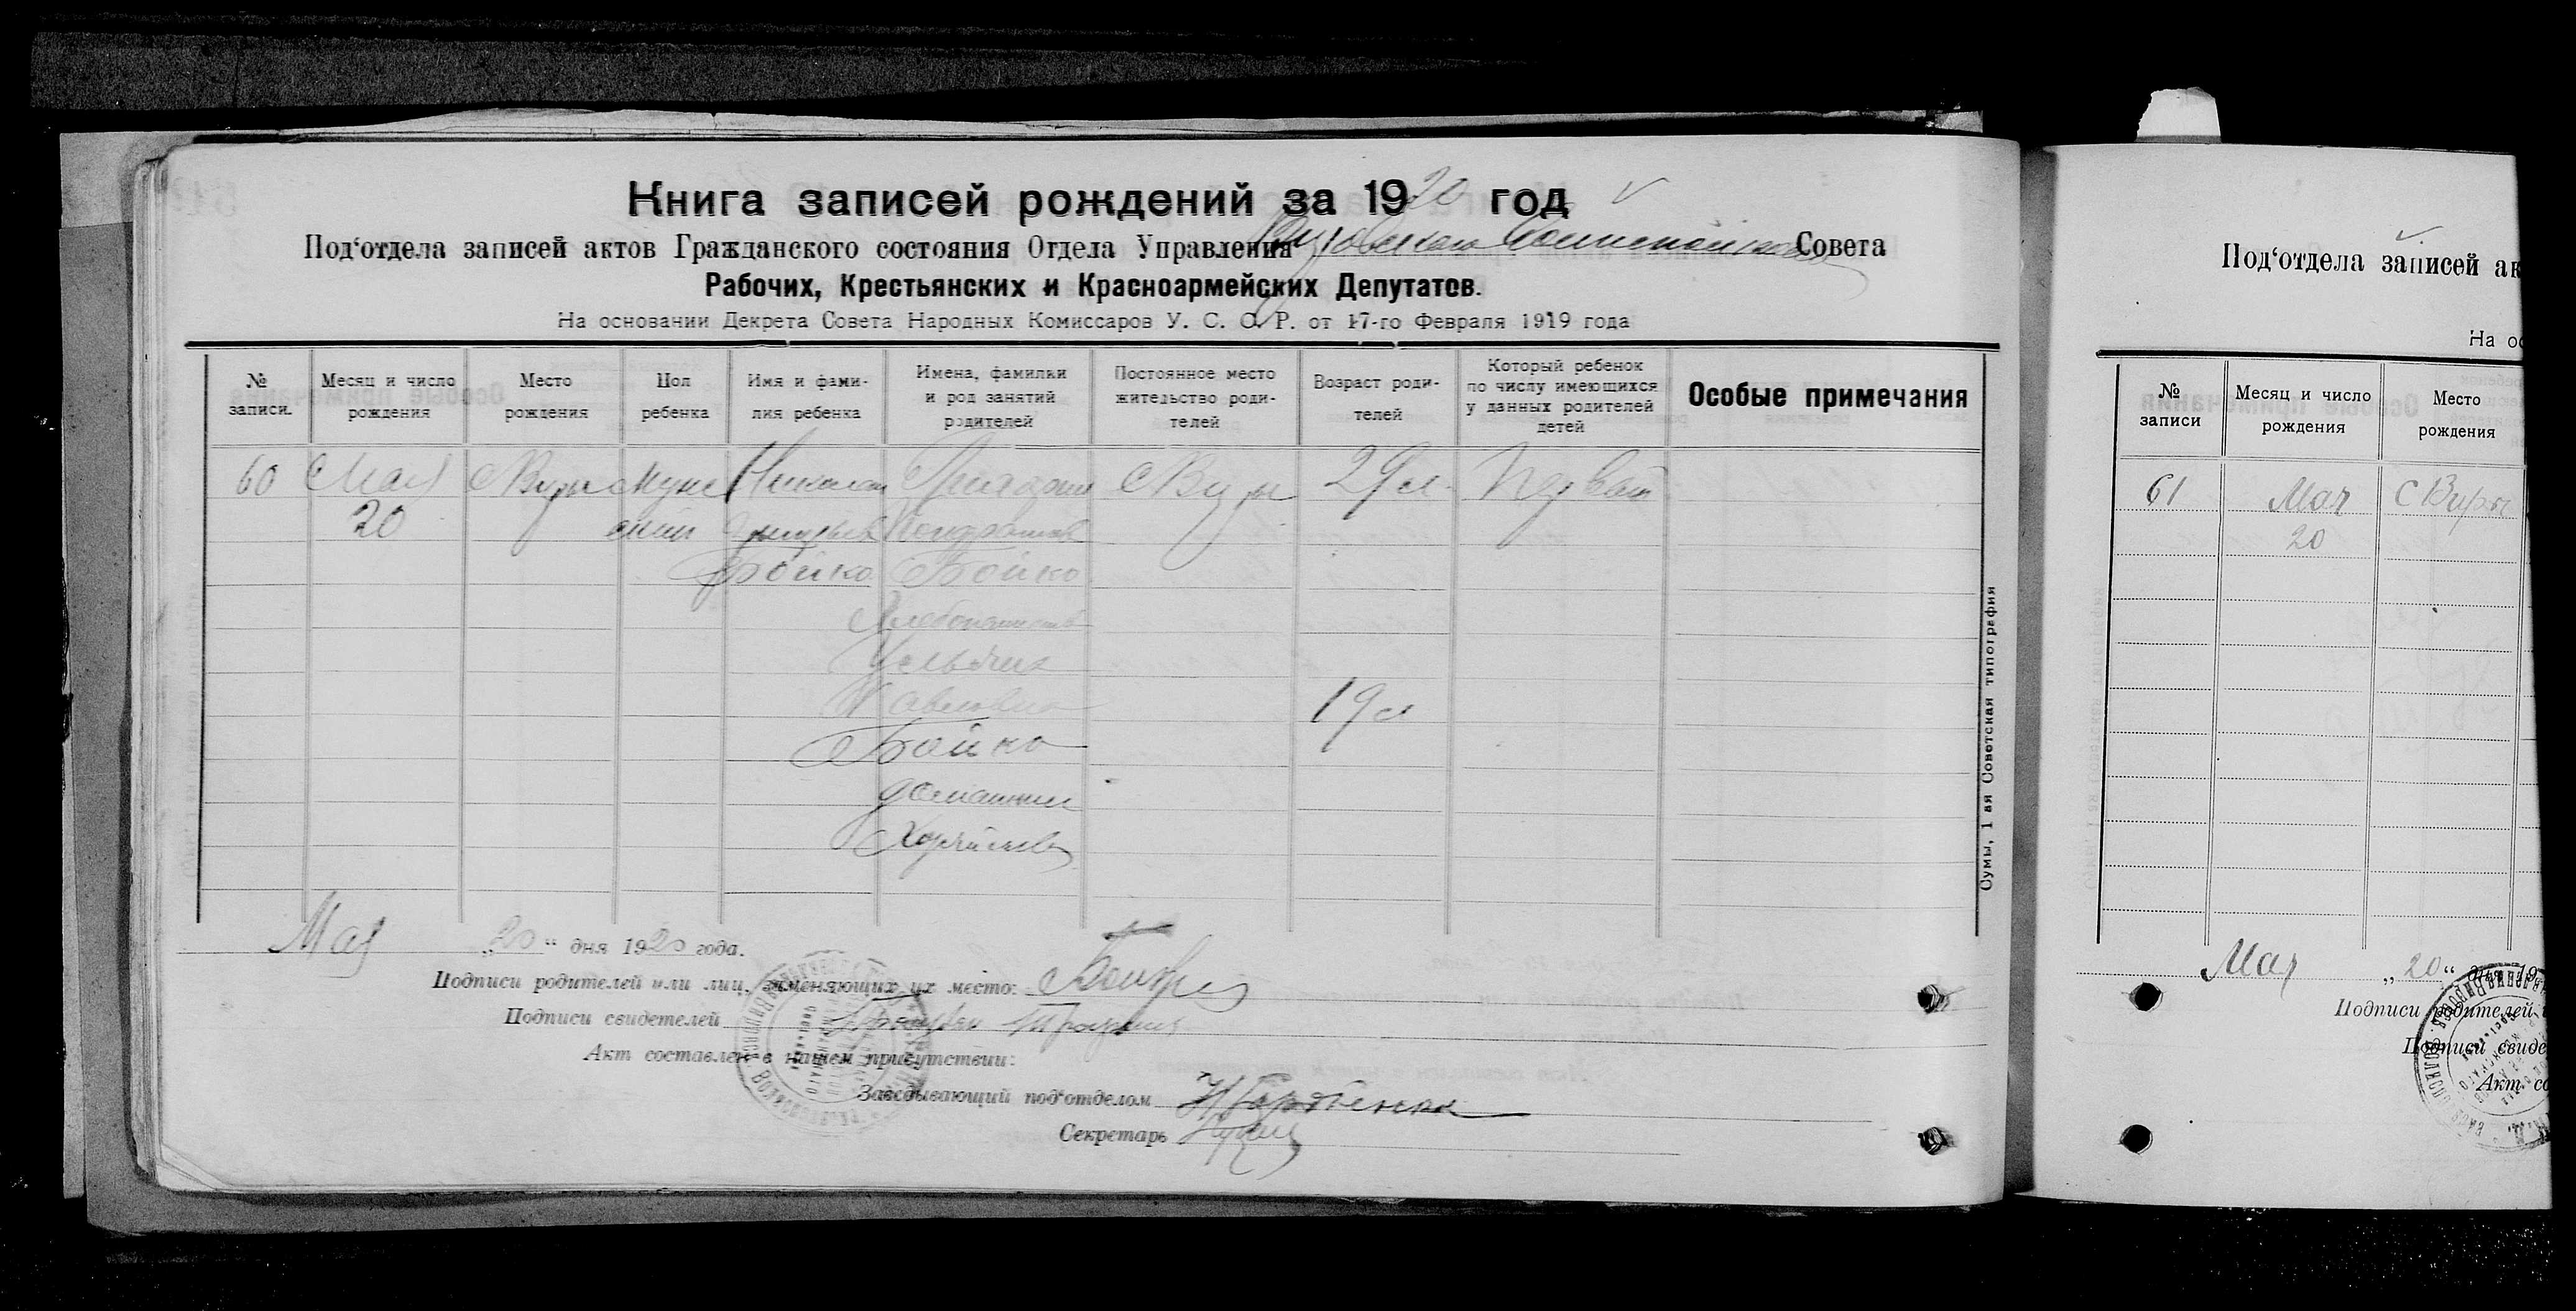 Книга записей рождений за 1920 год
Под‘отдела записей актов Гражданского состояния Отдела Управления Совета
Рабочих, Крестьянских и Красноармейских Депутатов.
На основании Декрета Совета Народных Комиссаров У. С. С. Р. от 17-го Февраля 1919 года
№ записи. Месяц и число рождения Место рождения Пол ребенка Имя и фами- лия ребенка Имена, фамилки и род занятий родителей Постоянное место жительство роди- телей Возраст роди- телей Который ребенок по числу имеющихся у данных родителей детей Особые примечания
60 Мая С Виры Муж Николай Григорий С Виры 29 л. Первый
20 ский Кондратов
Бойко Бойко
Хлебопашец
Ульяна
Павловна 19 л
Бойко
домашнее
Хозяйство
Мая „20“ дня 1920 года.
Подписи родителей или лиц, заменяющих их место:
Подписи свидетелей
Акт составлен в нашем присутствии:
Заведывающий под‘отделом
Секретарь
Сумы, 1 ая Советская типография
Под‘отдела записей ак
На ос
№ записи Месяц и число рождения Место рождения
61 Мая С Виры
20
Мая „20“ дня 19
Подписи родителей
Подписи свиде
Акт со